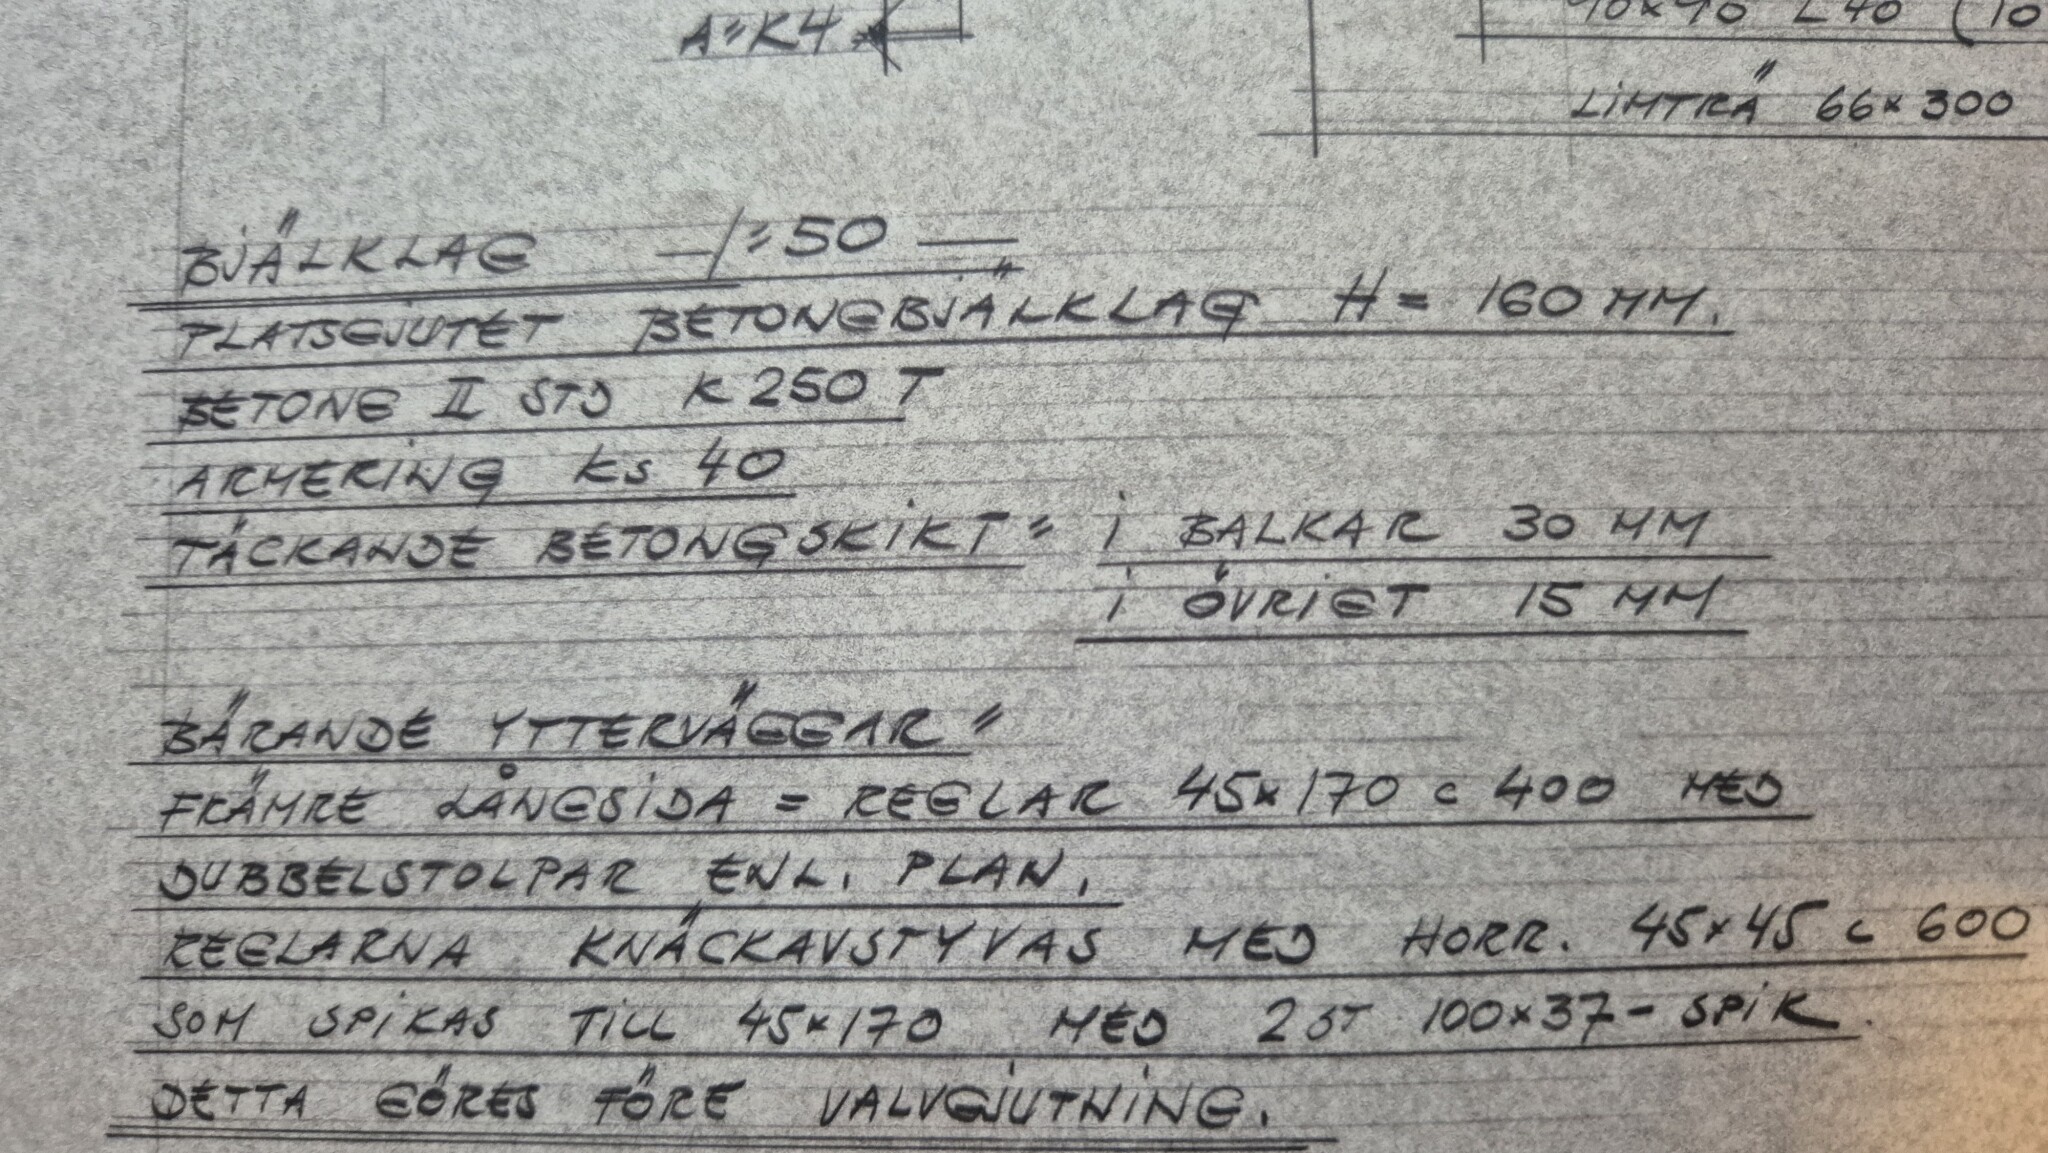 A=K4
LIMTRÄ 66x300
BJÄLKLAG 1:50
PLATSGJUTET BETONGBJÄLKLAG H= 160 MM.
BETONG II STD K 250 T
ARMERING KS 40
TÄCKANDE BETONGSKIKT= I BALKAR 30 MM
I ÖVRIGT 15 MM
BÄRANDE YTTERVÄGGAR=
FRÄMRE LÅNGSIDA = REGLAR 45x170 C 400 MED
DUBBELSTOLPAR ENL. PLAN.
REGLARNA KNÄCKAVSTYVAS MED HORR. 45x45 C 600
SOM SPIKAS TILL 45x170 MED 2 ST 100x37- SPIK.
DETTA GÖRES FÖRE VALVGJUTNING.